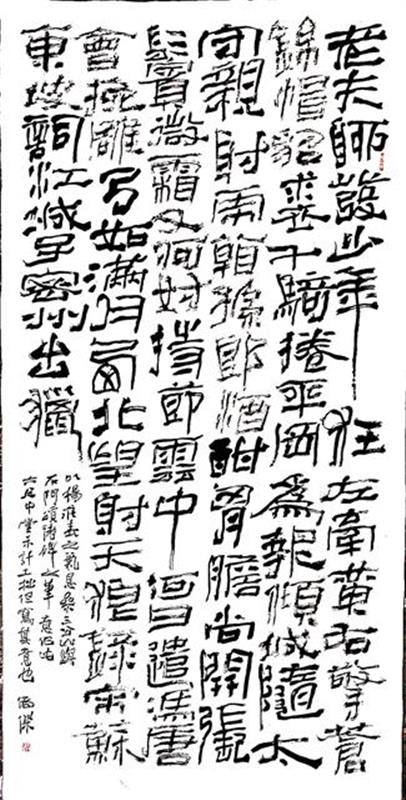 老夫聊發少年狂左牽黄右擎蒼
錦帽貂裘千騎捲平岡為報傾城隨太
守親射虎看孫郎酒酣胸膽尚開張
鬢微霜又何妨持節雲中何日遣馮唐
會挽雕弓如滿月西北望射天狼錄宋蘇
東坡詞江城子密州出獵
以楊淮表之氣息
石門頌諸碑之筆意作此
六尺中堂不計工拙但寫其意也